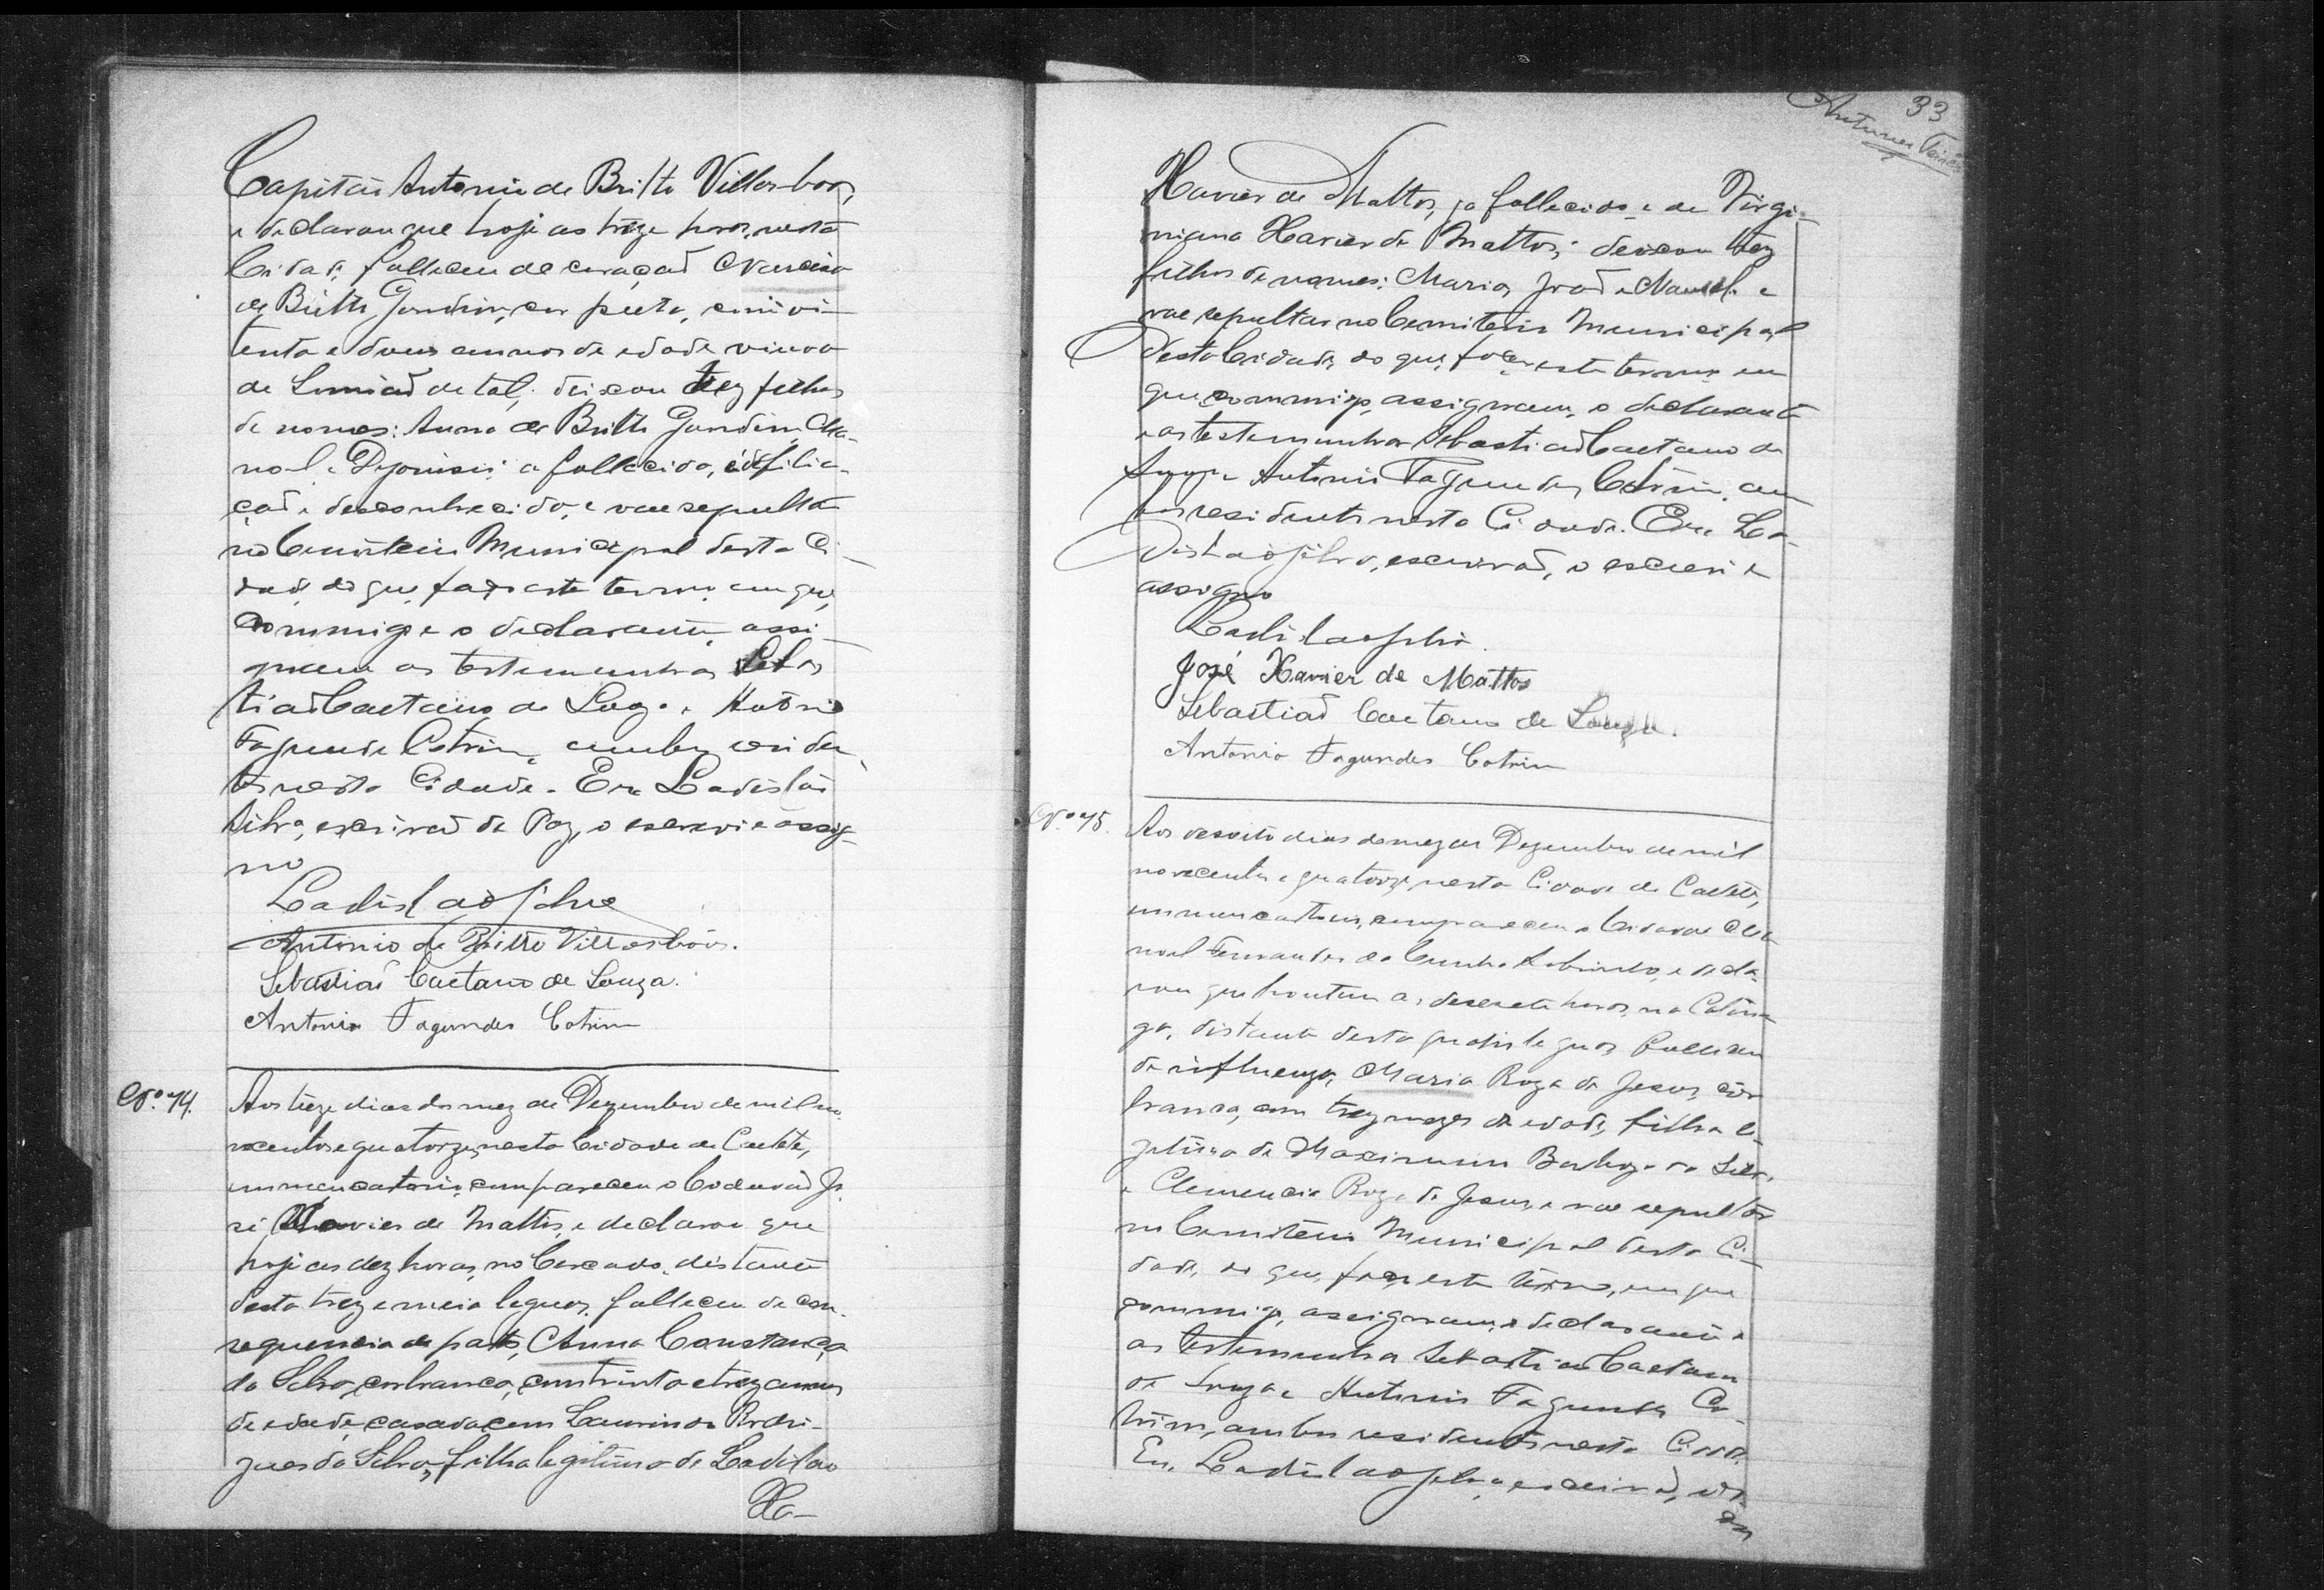 Capitão Antonio de Britto Villas-boas,
e declarou que hoje as treze horas, nesta
Cidade, falleceu de coração Narciza
de Britto Gondim, cor preta, com oi-
tenta e dous annos de edade, viuva
de Simião de tal; deixou trez filhos
de nomes: Anna de Britto Gondim, Ma-
noel e Dyonisio; a fallecida, é de filia-
ção desconhecida, e vae sepultar
no Cemiterio Municipal desta Ci-
dade, do que, faço este termo em que,
commigo e o declarante, assi-
gnam as testemunhas Sebas
tião Caetano de Souza e Antonio
Fagundes Cotrim, ambos residen
tes nesta Cidade. Eu Ladisláo
Silva, escrivão de Paz, o escrevi e assig-
no
Ladisláo Silva
Antonio de Britto Villasbôas.
Sebastião Caetano de Souza.
Antonio Fagundes Cotrim
Nº. 74.
Aos treze dias do mez de Dezembro de mil no-
vecentos e quatorze, nesta Cidade de Caeteté,
em meu cartorio, compareceu o Cidadão Jo-
sé Xavier de Mattos, e declarou que
hoje as dez horas, no Cercado, distante
desta trez e meia leguas, falleceu de con-
sequencia de parto, Anna Constança
da Silva, cor branca, com trinta e trez annos
de edade, casada com Laurindo Rodri-
gues da Silva, filha legitima de Ladislao
Xa-
33
Antunes
Xavier de Mattos, ja fallecido e de Virgi-
niana Xavier de Mattos; deixou trez
filhos de nomes: Maria, João e Manoel e
vae sepultar no Cemiterio Municipal
desta Cidade, do que, faço este termo em
que commigo, assignam, o declarante
e as testemunhas Sebastião Caetano de
Souza e Antonio Fagundes Cotrim, am
bos residentes nesta Cidade. Eu La-
disláo Silva, escrivão, o escrevi e
assigno
Ladisláo Silva.
José Xavier de Mattos
Sebastião Caetano de Souza.
Antonio Fagundes Cotrim
Nº 75.
Aos desoito dias do mez de Dezembro de mil
novecentos e quatorze, nesta Cidade de Caeteté,
em meu cartorio, compareceu o Cidadão Ma-
noel Fernandes da Cunha Sobrinho, e decla-
rou que hontem as desesete horas, na Catin-
ga, distante desta quatro leguas, falleceu
de influenza, Maria Roza de Jesus, côr
branca, com trez mezes de edade, filha le-
gitima de Maximiano Barboza da Silva
e Clemencia Roza de Jesus, e vae sepultar
no Cemiterio Municipal desta Ci-
dade, do que, faço este termo, em que
commigo, assignam, o declarante e
as testemunhas Sebastião Caetano
de Souza e Antonio Fagundes Co-
trim, ambos residentes nesta Cidade.
Eu, Ladisláo Silva, escrivão,